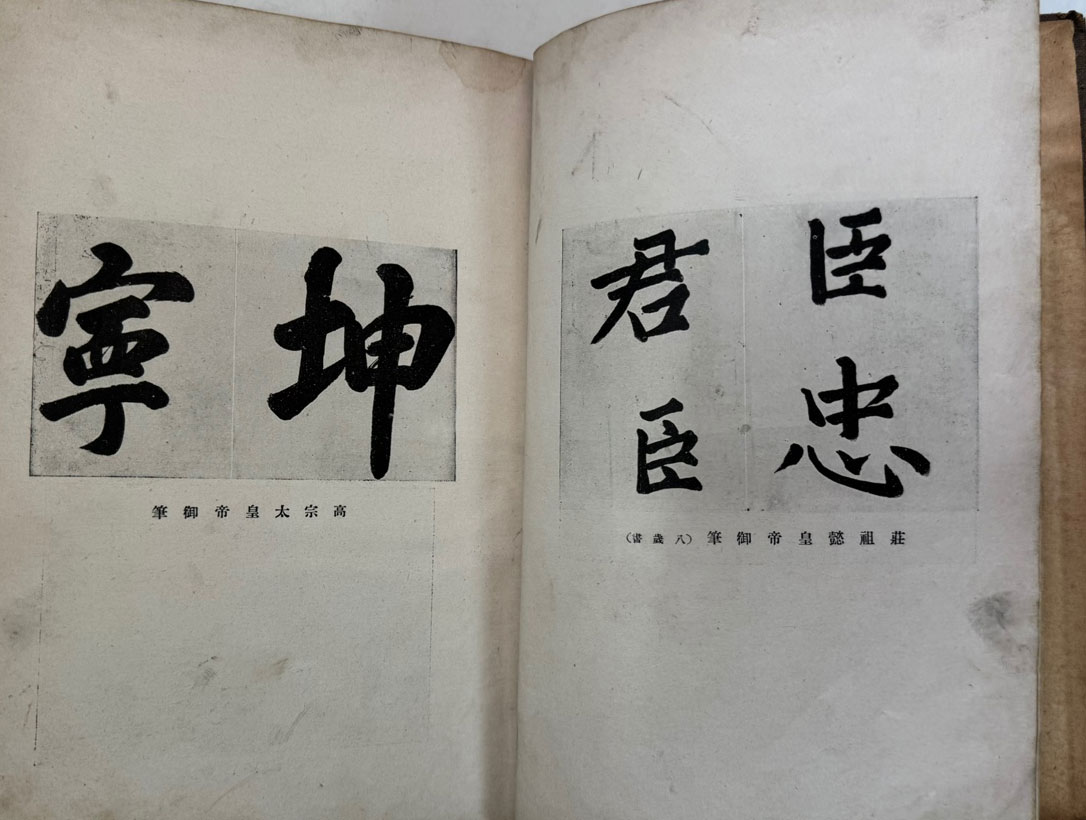 臣忠
君臣
莊祖懿皇帝御筆(八歲書)
坤寧
高宗太皇帝御筆